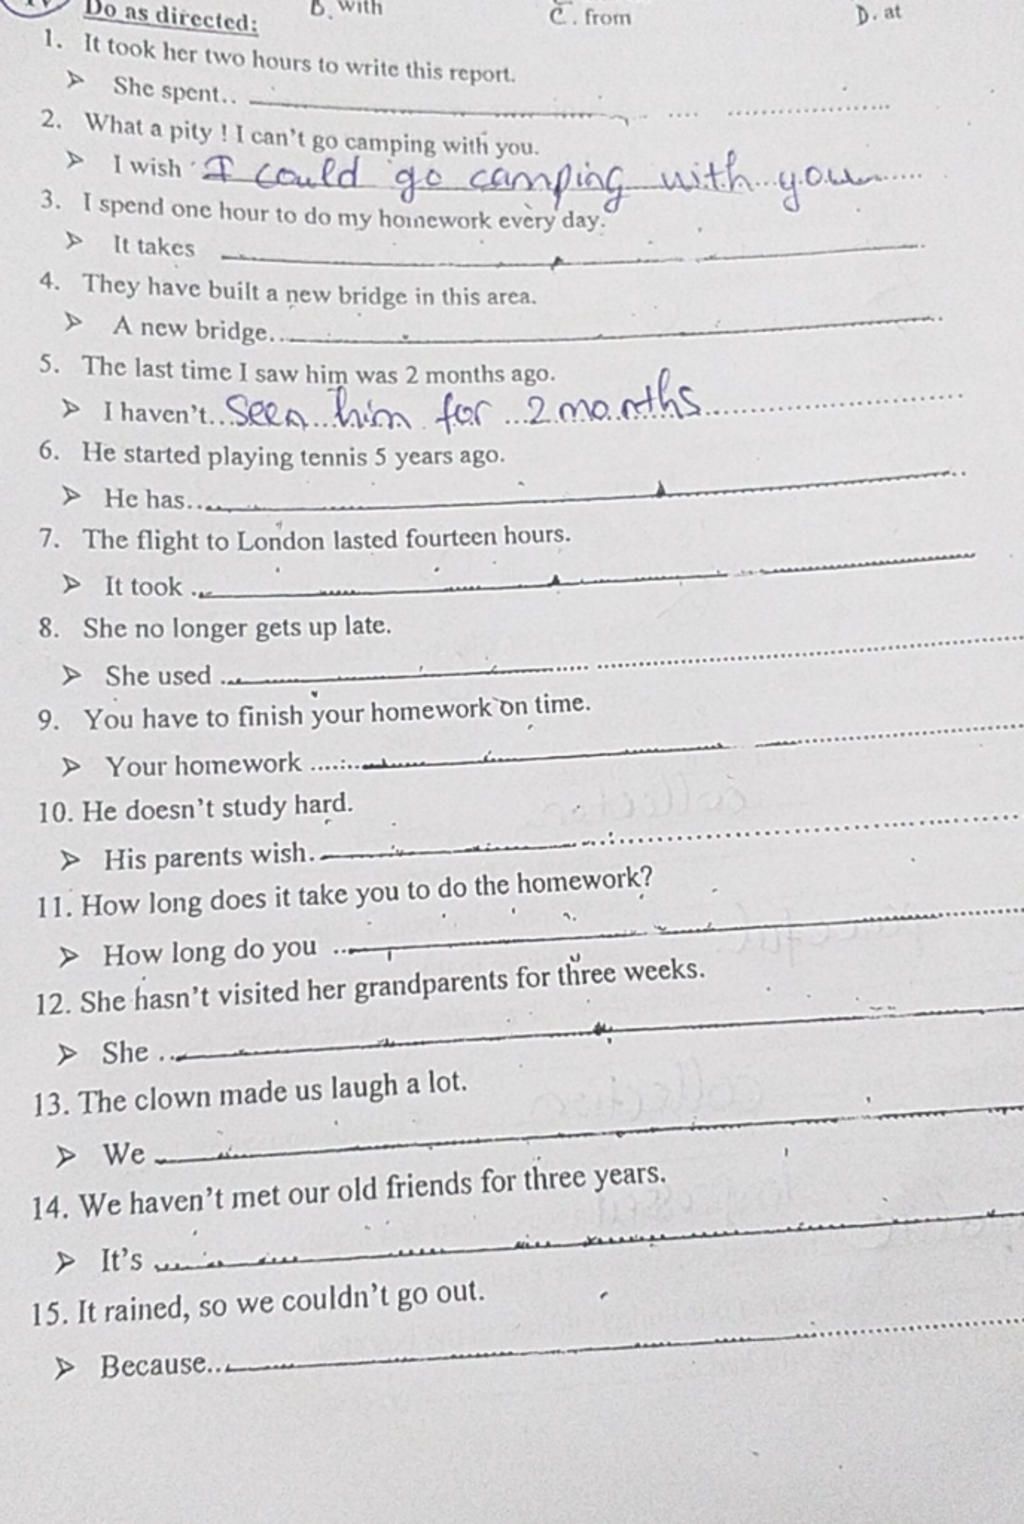 B. with C. from D. at
Do as directed:
1. It took her two hours to write this report.
➢ She spent..
2. What a pity ! I can't go camping with you.
➢ I wish I could go camping with you
3. I spend one hour to do my homework every day.
➢ It takes
4. They have built a new bridge in this area.
➢ A new bridge..
5. The last time I saw him was 2 months ago.
➢ I haven't.. seen him for 2 months
6. He started playing tennis 5 years ago.
➢ He has..
7. The flight to London lasted fourteen hours.
➢ It took
8. She no longer gets up late.
➢ She used
9. You have to finish your homework on time.
➢ Your homework
10. He doesn't study hard.
➢ His parents wish.
11. How long does it take you to do the homework?
➢ How long do you
12. She hasn't visited her grandparents for three weeks.
➢ She
13. The clown made us laugh a lot.
➢ We
14. We haven't met our old friends for three years.
➢ It's
15. It rained, so we couldn't go out.
➢ Because..